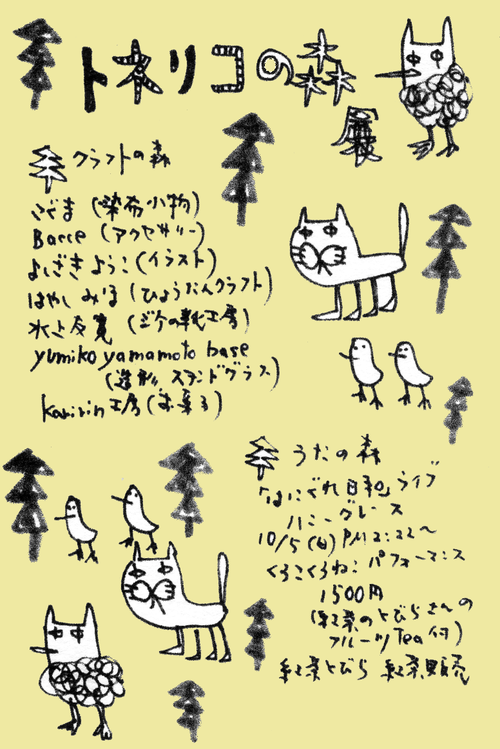 トネリコの森
展
クラフトの森
こだま (染布小物)
Bacce (アクセサリー)
よしざき ようこ (イラスト)
はやし みほ (ひょうたんクラフト)
水上友寛 (ミケの靴工房)
yumiko yamamoto base
(造形 ステンドグラス)
karinrin工房 (お菓子)
うたの森
「はにぐれ日和」ライブ
ハニーグレース
10/5 (日) PM2:22〜
くろこくろねこ パフォーマンス
1500円
(紅茶のとびらさんの
フルーツTea付)
紅茶とびら 紅茶販売